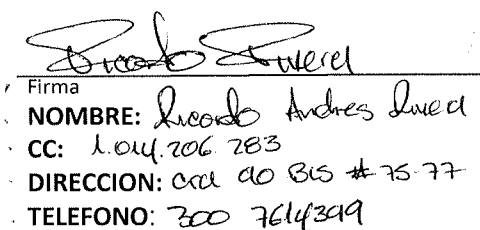 Ricardo Rivera
Firma
NOMBRE: Ricardo Andres Rivera
CC: 1.014.206.283
DIRECCION: Cra 90 BIS # 75-77
TELEFONO: 300 7614399